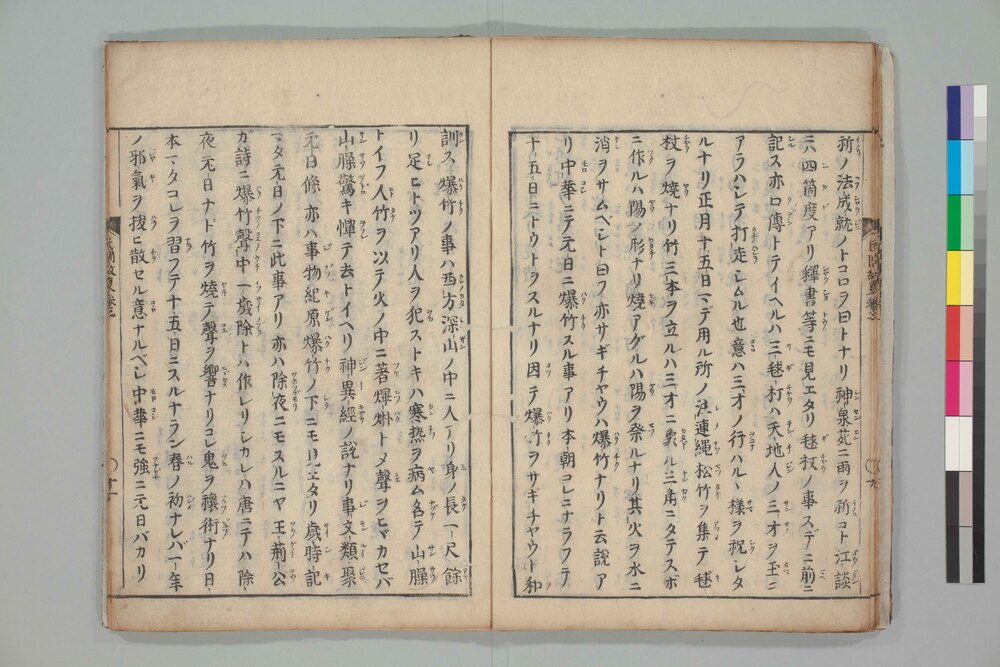 祈ノ法成就ノトコロヲ曰トナリ神泉苑ニ雨ヲ祈コト江談
六四箇度アリ釋書等ニモ見エタリ毬杖ノ事スデニ前ニ
記ス亦口傳トテイヘルハ三毬打ハ天地人ノ三才ヲ玉ニ
アラハシテ打走シムル也意ハ三才ノ行ハルヽ様ヲ祝シタ
ルナリ正月十五日マデ用ル所ノ注連縄松竹ヲ集テ毬
杖ヲ焼ナリ竹三本ヲ立ルハ三才ニ象ル三角ニタテスボ
ニ作ルハ陽ノ形ナリ燒アグルハ陽ヲ祭ルナリ其火ヲ水ニ
消ヲサムベシト曰フ亦サギチヤウハ爆竹ナリト云說ア
リ中華ニテ元日ニ爆竹スル事アリ本朝コレニナラフテ
十五日ニトウトヲスルナリ因テ爆竹ヲサギチヤウト和
訓ス爆竹ノ事ハ西方深山ノ中ニ人アリ身ノ長一尺餘
リ足ヒトツアリ人ヲ犯ストキハ寒熱ヲ病ム名テ山臊
トイフ人竹ヲ以テ火ノ中ニ著爆烞トメ聲ヲヒヾカセバ
山臊驚キ憚テ去トイヘリ神異經ノ說ナリ事文類聚
元日條亦ハ事物紀原爆竹ノ下ニモ見エタリ歲時記
マタ元日ノ下ニ此事アリ亦ハ除夜ニモスルニヤ王荊公
ガ詩ニ爆竹聲中一歲除トハ作レリシカレハ唐ニテハ除
夜元日ナド竹ヲ燒テ聲ヲ響ナリコレ鬼ヲ禳術ナリ日
本マタコレヲ習フテ十五日ニスルナラン春ノ初ナレバ一年
ノ邪氣ヲ拔ヒ散セル意ナルベシ中華ニモ強ニ元日バカリ